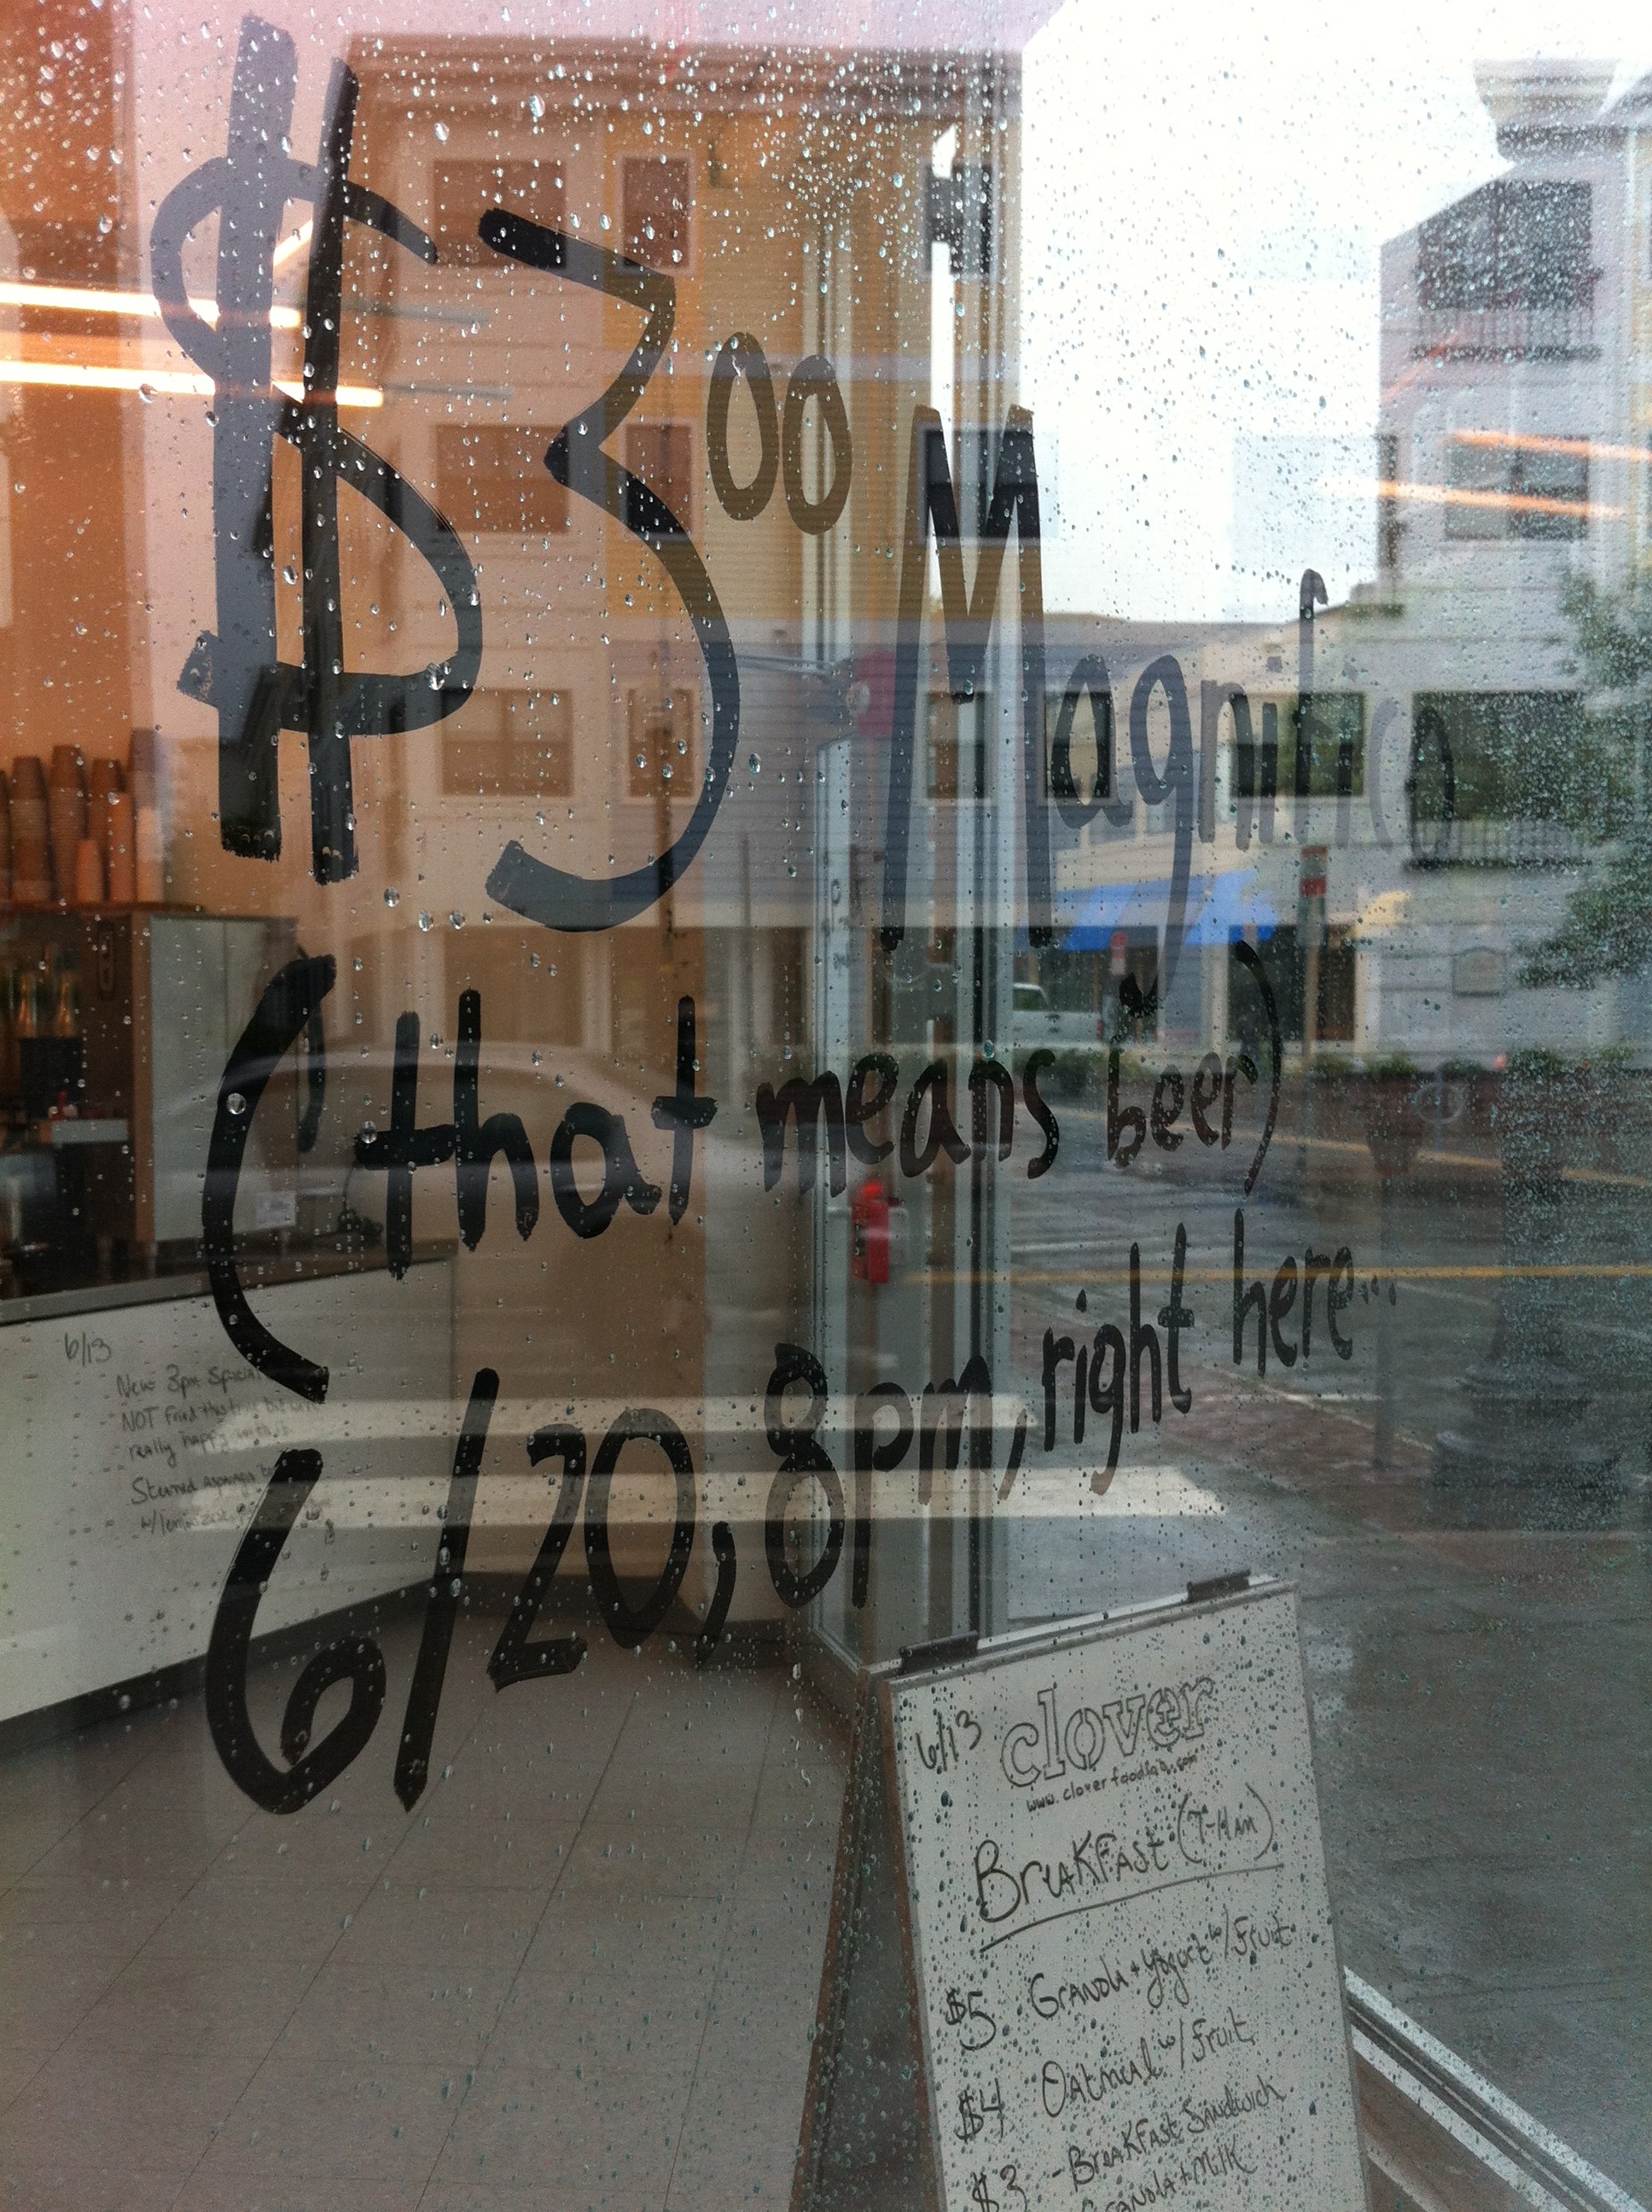 $3 00 Magnifico
(that means beer)
6/20, 8pm, right here...
6/13
New 3pm Special
NOT Fried this time but we're
really happy with it.
Steamed asparagus
w/lemon
6/13 clover
www.cloverfoodlab.com
Breakfast (7-11am)
$5 Granola + yogurt w/ Fruit
$4 Oatmeal w/ Fruit
$3 - Breakfast Sandwich
Granola + Milk